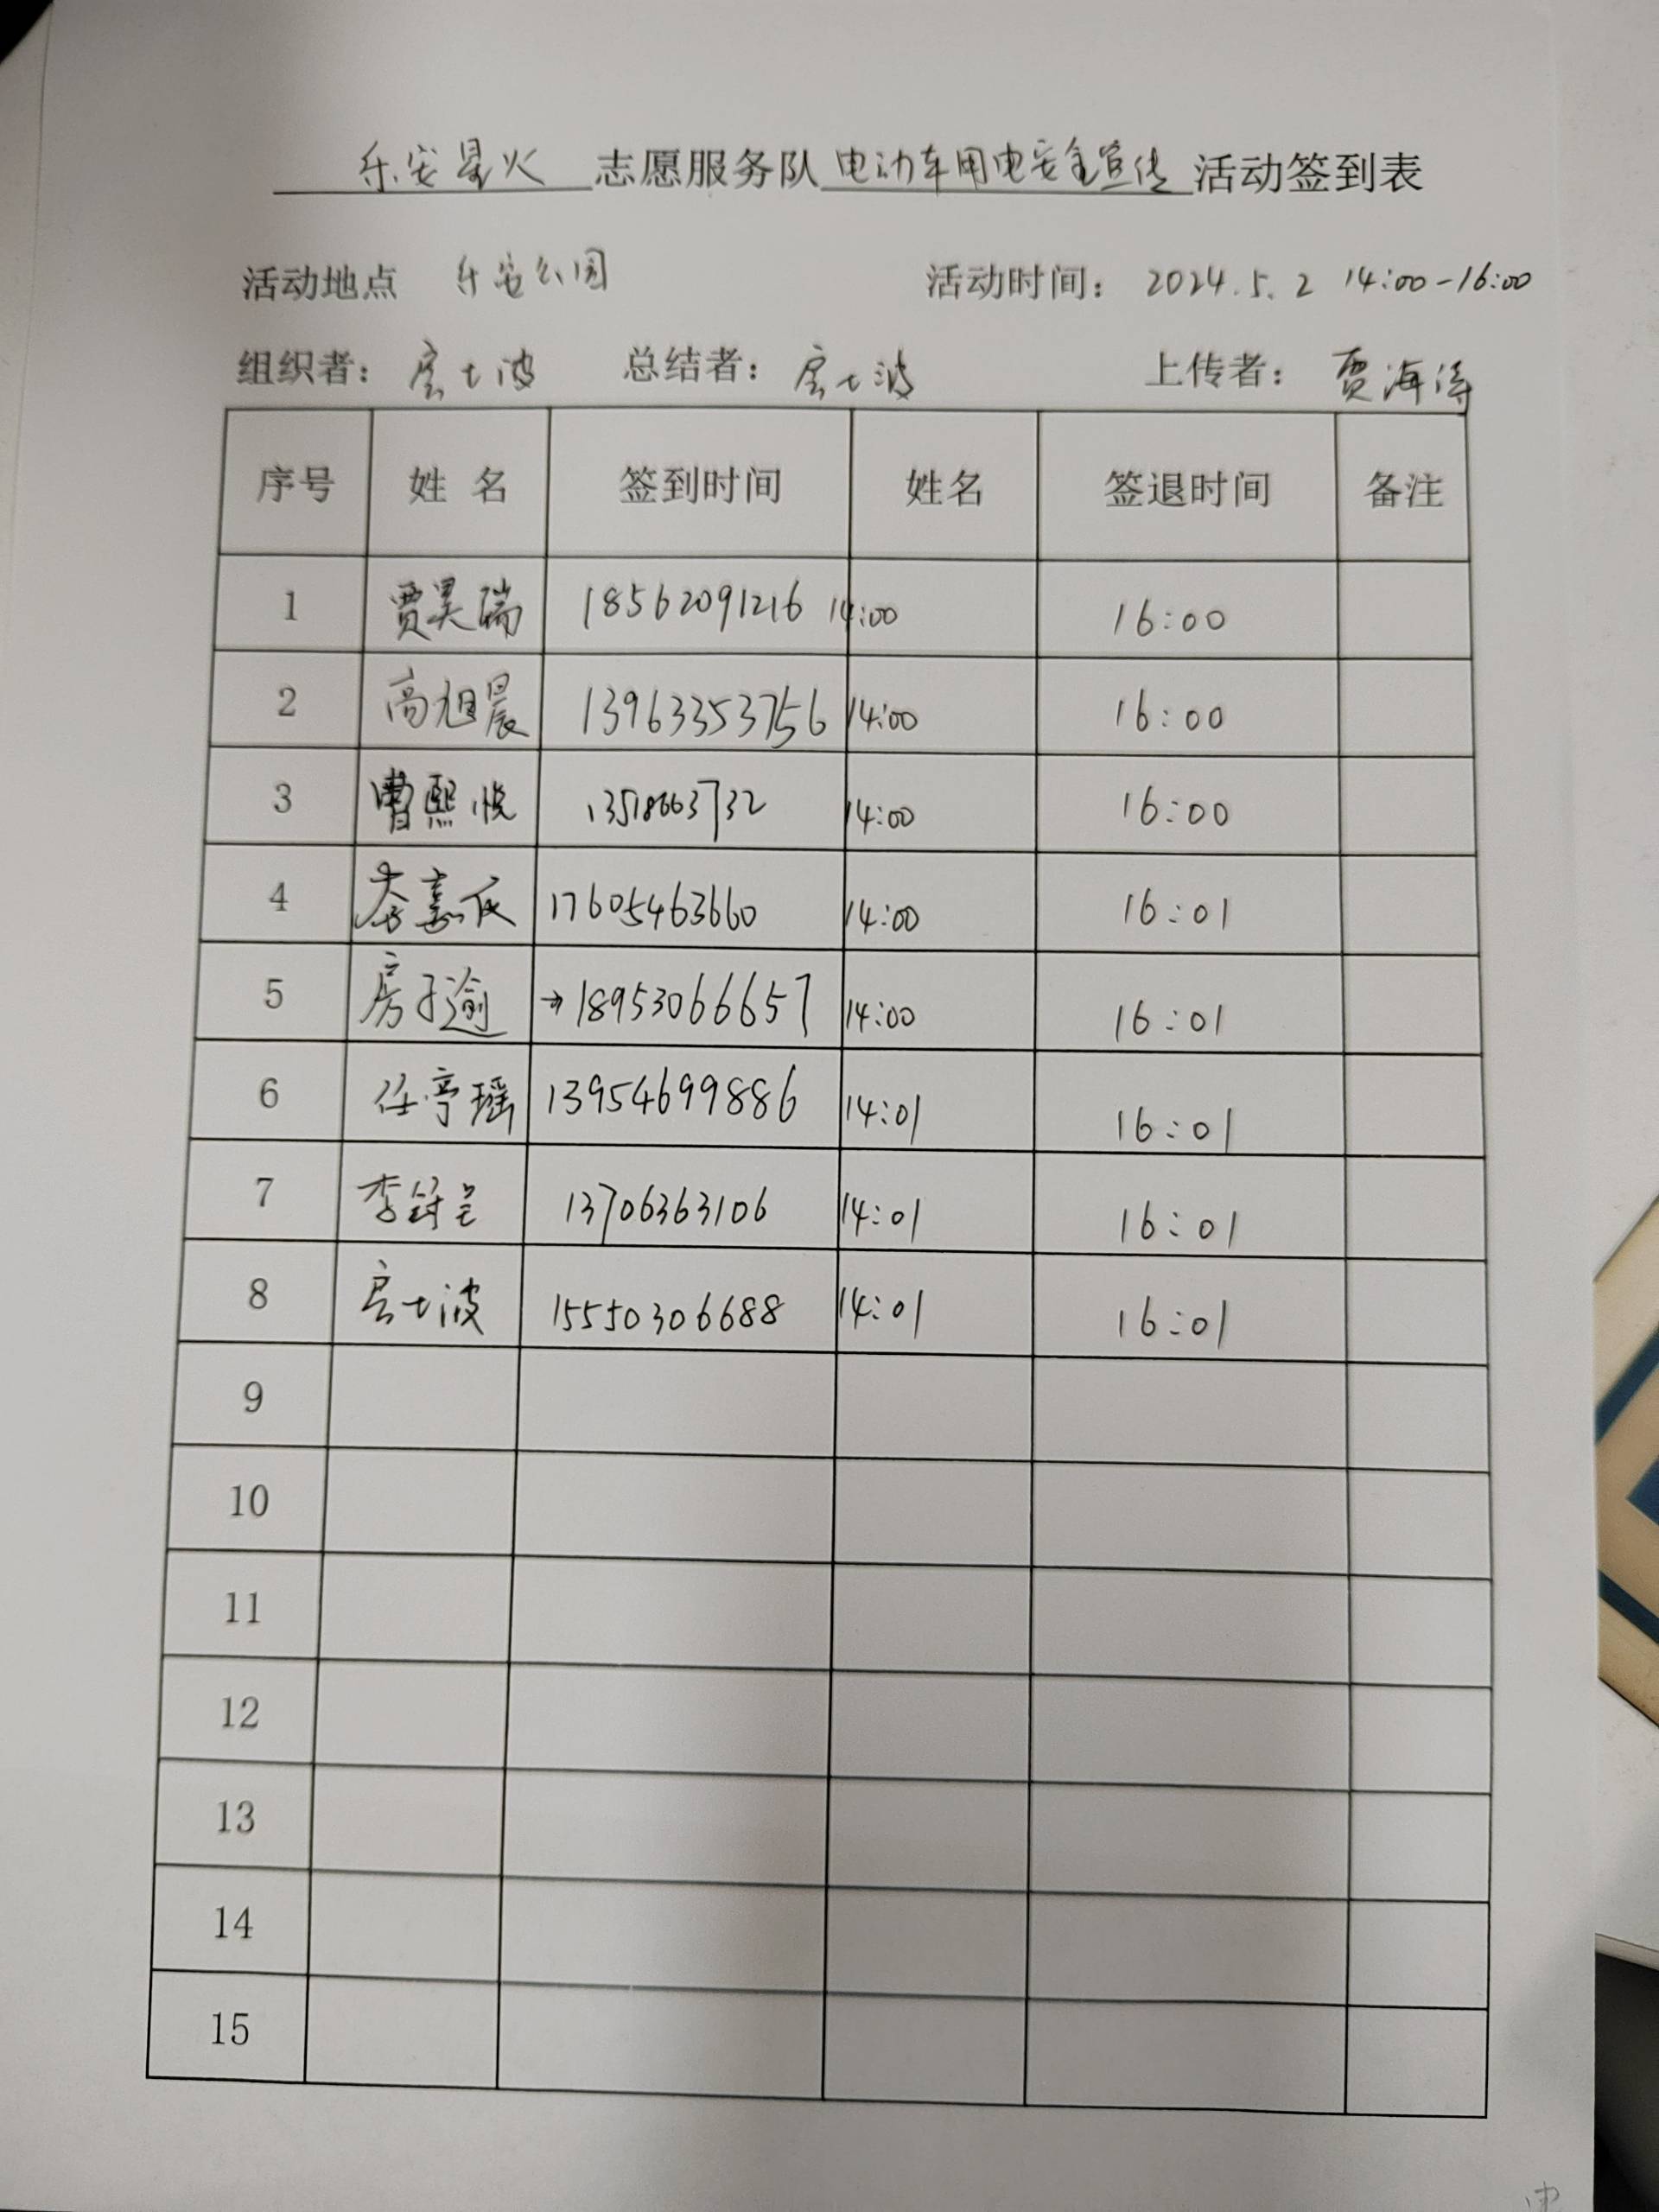 乐安星火 志愿服务队 电动车用电安全宣传 活动签到表
活动地点 乐安公园 活动时间： 2024.5.2 14:00-16:00
组织者： 房士波 总结者： 房士波 上传者： 贾海涛
序号 姓 名 签到时间 姓名 签退时间 备注
1 贾昊瑞 18562091216 14:00 16:00
2 高旭晨 13963353756 14:00 16:00
3 曹熙悦 14:00 16:00
4 17605463660 14:00 16:01
5 房子逾 →18953066657 14:00 16:01
6 任亭瑶 13954699886 14:01 16:01
7 13706363106 14:01 16:01
8 房士波 15550306688 14:01 16:01
9
10
11
12
13
14
15